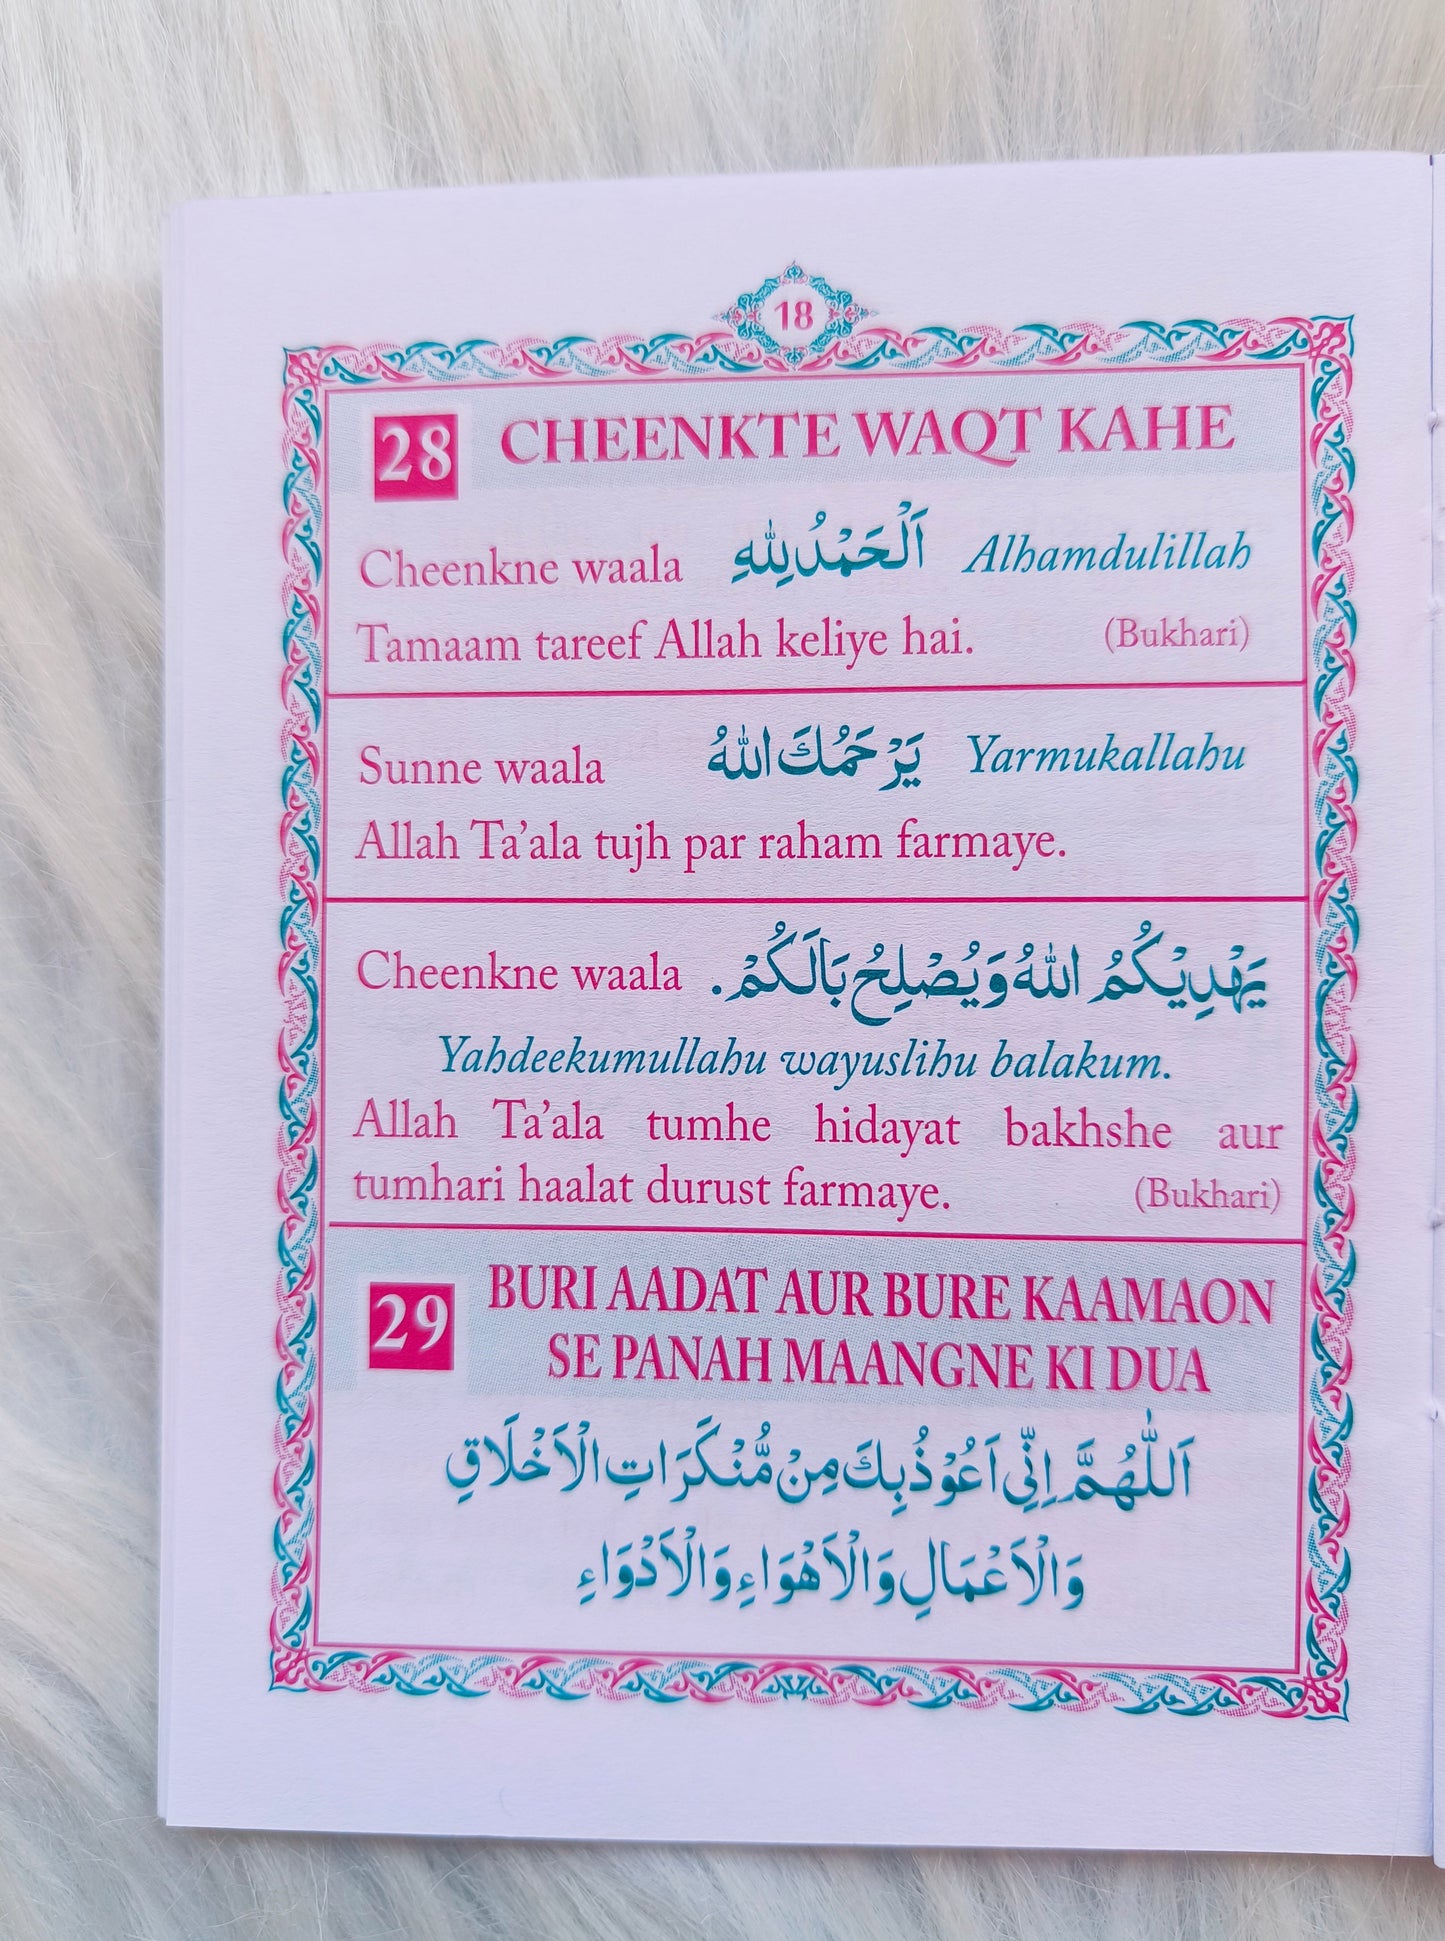 18
28 CHEENKTE WAQT KAHE
Cheenkne waala اَلْحَمْدُ لِلّٰهِ Alhamdulillah
Tamaam tareef Allah keliye hai. (Bukhari)
Sunne waala يَرْحَمُكَ اللّٰهُ Yarmukallahu
Allah Ta’ala tujh par raham farmaye.
Cheenkne waala يَهْدِيْكُمُ اللّٰهُ وَيُصْلِحُ بَالَكُمْ.
Yahdeekumullahu wayuslihu balakum.
Allah Ta’ala tumhe hidayat bakhshe aur
tumhari haalat durust farmaye. (Bukhari)
29 BURI AADAT AUR BURE KAAMAON
SE PANAH MAANGNE KI DUA
اَللّٰهُمَّ اِنِّى اَعُوْذُ بِكَ مِنْ مُّنْكَرَاتِ الْاَخْلَاقِ
وَالْاَعْمَالِ وَالْاَهْوَاءِ وَالْاَدْوَاءِ